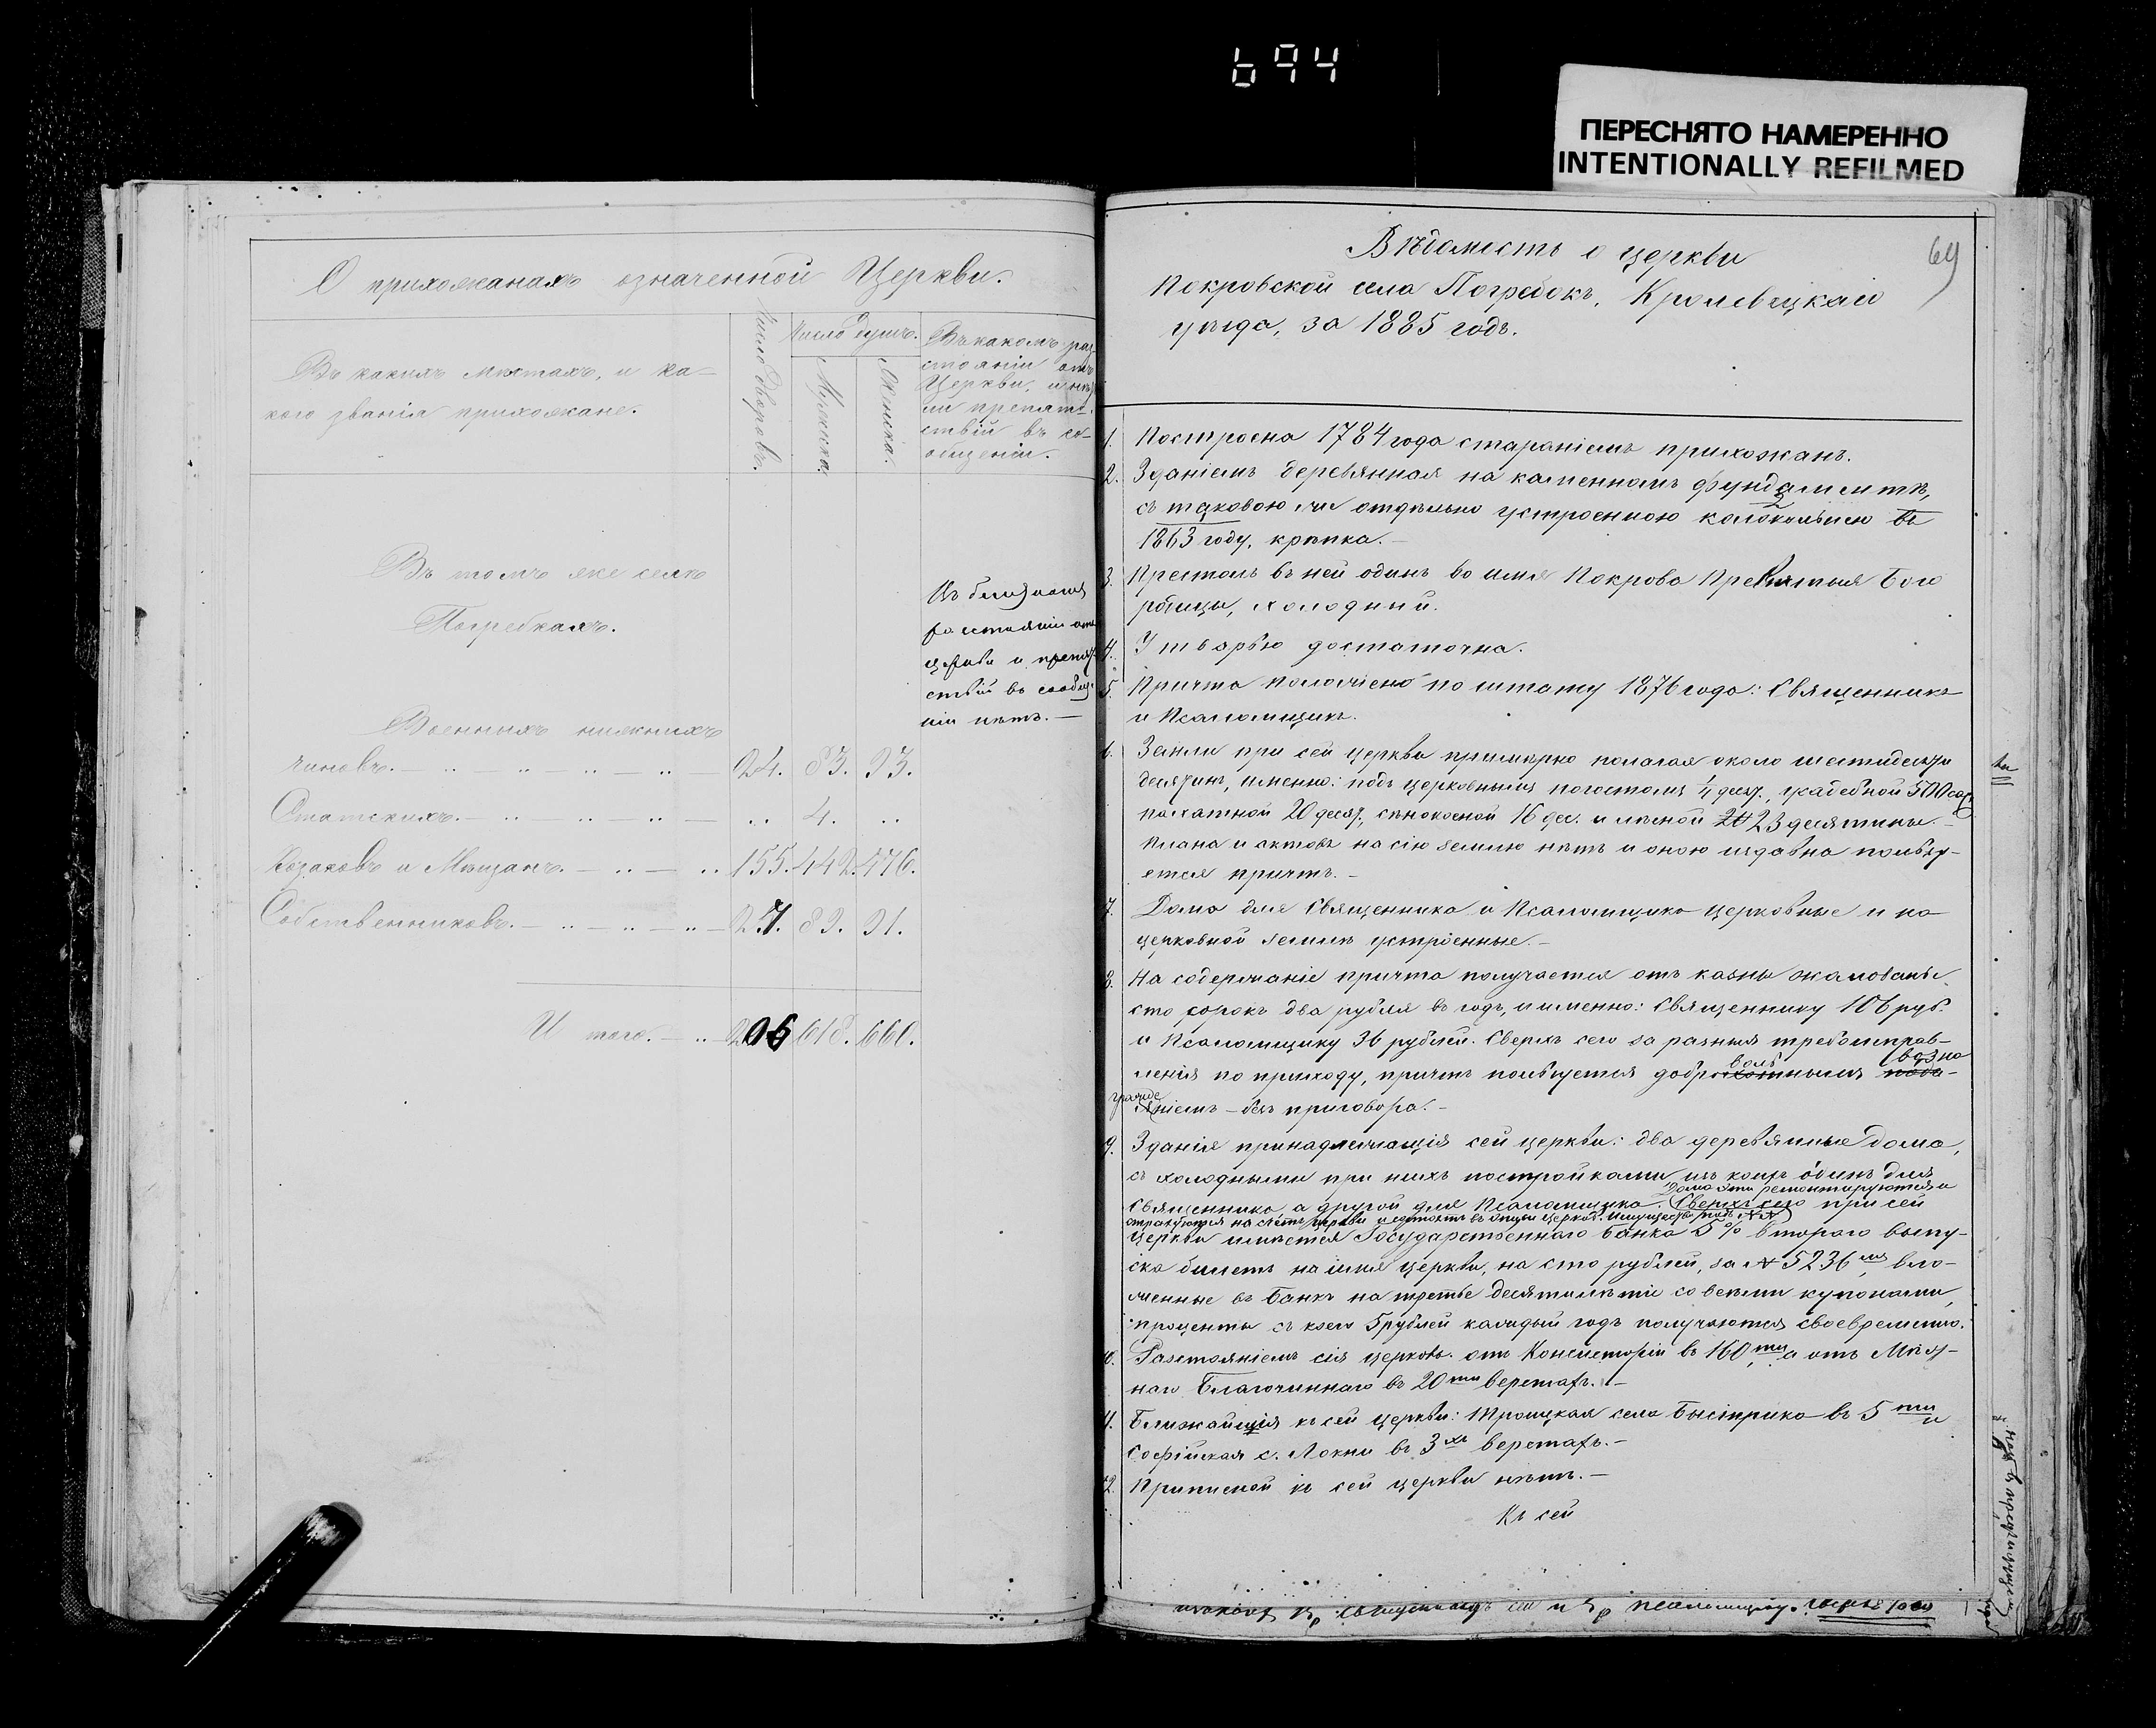 694
ПЕРЕСНЯТО НАМЕРЕННО
INTENTIONALLY REFILMED
О прихожанахъ означенной Церкви.
Въ какихъ мѣстахъ, и ка-
кого званія прихожане.
Число дворовъ.
Число душъ.
Мужска.
Женска.
Въ какомъ раз-
стояніи отъ
Церкви, и нѣтъ
ли препят-
ствій въ со-
общеніи.
Въ томъ же селѣ
Погребкахъ.
Въ близкомъ
растояніи отъ
церкви и препят
ствій въ сообще
ніи нѣтъ. —
Военныхъ нижнихъ
чиновъ. — .. .. — .. — .. 24. 83. 93.
Статскихъ. — .. .. — .. — .. 4. ..
Козаковъ и Мѣщанъ. — .. — .. 155. 442. 476.
Собственниковъ. — .. — .. — .. — 27. 89. 91.
И того. — .. — 206 618. 660.
69
Вѣдомость о церкви
Покровской села Погребокъ, Кролевецкаго
уѣзда, за 1885 годъ.
1. Построена 1784 года стараніемъ прихожанъ.
2. Зданіемъ деревянная на каменномъ фундаментѣ,
съ таковою же отдѣльно устроенною колокольнею въ
1863 году, крѣпка. —
3. Престолъ въ ней одинъ во имя Покрова Пресвятыя Бого
родицы, холодный.
4. Утварью достаточна.
5. Причта положено по штату 1876 года: Священникъ
и Псаломщикъ.
6. Земли при сей церкви примѣрно полагая около шестидесяти
десятинъ, именно: подъ церковнымъ погостомъ 1/4 десят., усадебной 500 саж.
пахатной 20 десят., сѣнокосной 16 дес. и лѣсной 20 23 десятины. —
Плана и актовъ на сію землю нѣтъ и оною издавна пользу-
ется причтъ. —
7. Дома для Священника и Псаломщика церковные и на
церковной землѣ устроенные. —
8. На содержаніе причта получается отъ казны жалованья
сто сорокъ два рубля въ годъ, и именно: Священнику 106 руб.
и Псаломщику 36 рублей. Сверхъ сего за разныя требоисправ-
воль возна
ленія по приходу, причтъ пользуется доброхотнымъ пода-
гражде
яніемъ — безъ приговора. —
9. Зданія принадлежащія сей церкви: два деревянные дома,
съ холодными при нихъ постройками изъ коихъ одинъ для
Дома эти ремонтируются и
Священника, а другой для Псаломщика. Сверхъ сего при сей
страхуются на счетъ церкви и состоятъ въ описи церков. имущества подъ №№
церкви имѣется Государственнаго Банка 5% втораго выпу-
ска билетъ на имя церкви, на сто рублей, за № 5236мъ, вло-
женные въ Банкъ на третье десятилѣтіе со всѣми купонами,
проценты съ коего 5 рублей каждый годъ получаются своевременно.
10. Разстояніемъ сія церковь отъ Консисторіи въ 160ти, а отъ Мѣст-
наго Благочиннаго въ 20ти верстахъ. —
11. Ближайшія къ сей церкви: Троицкая села Быстрика въ 5ти и
Софійская с. Локни въ 3хъ верстахъ. —
12. Приписной къ сей церкви нѣтъ. —
Къ сей